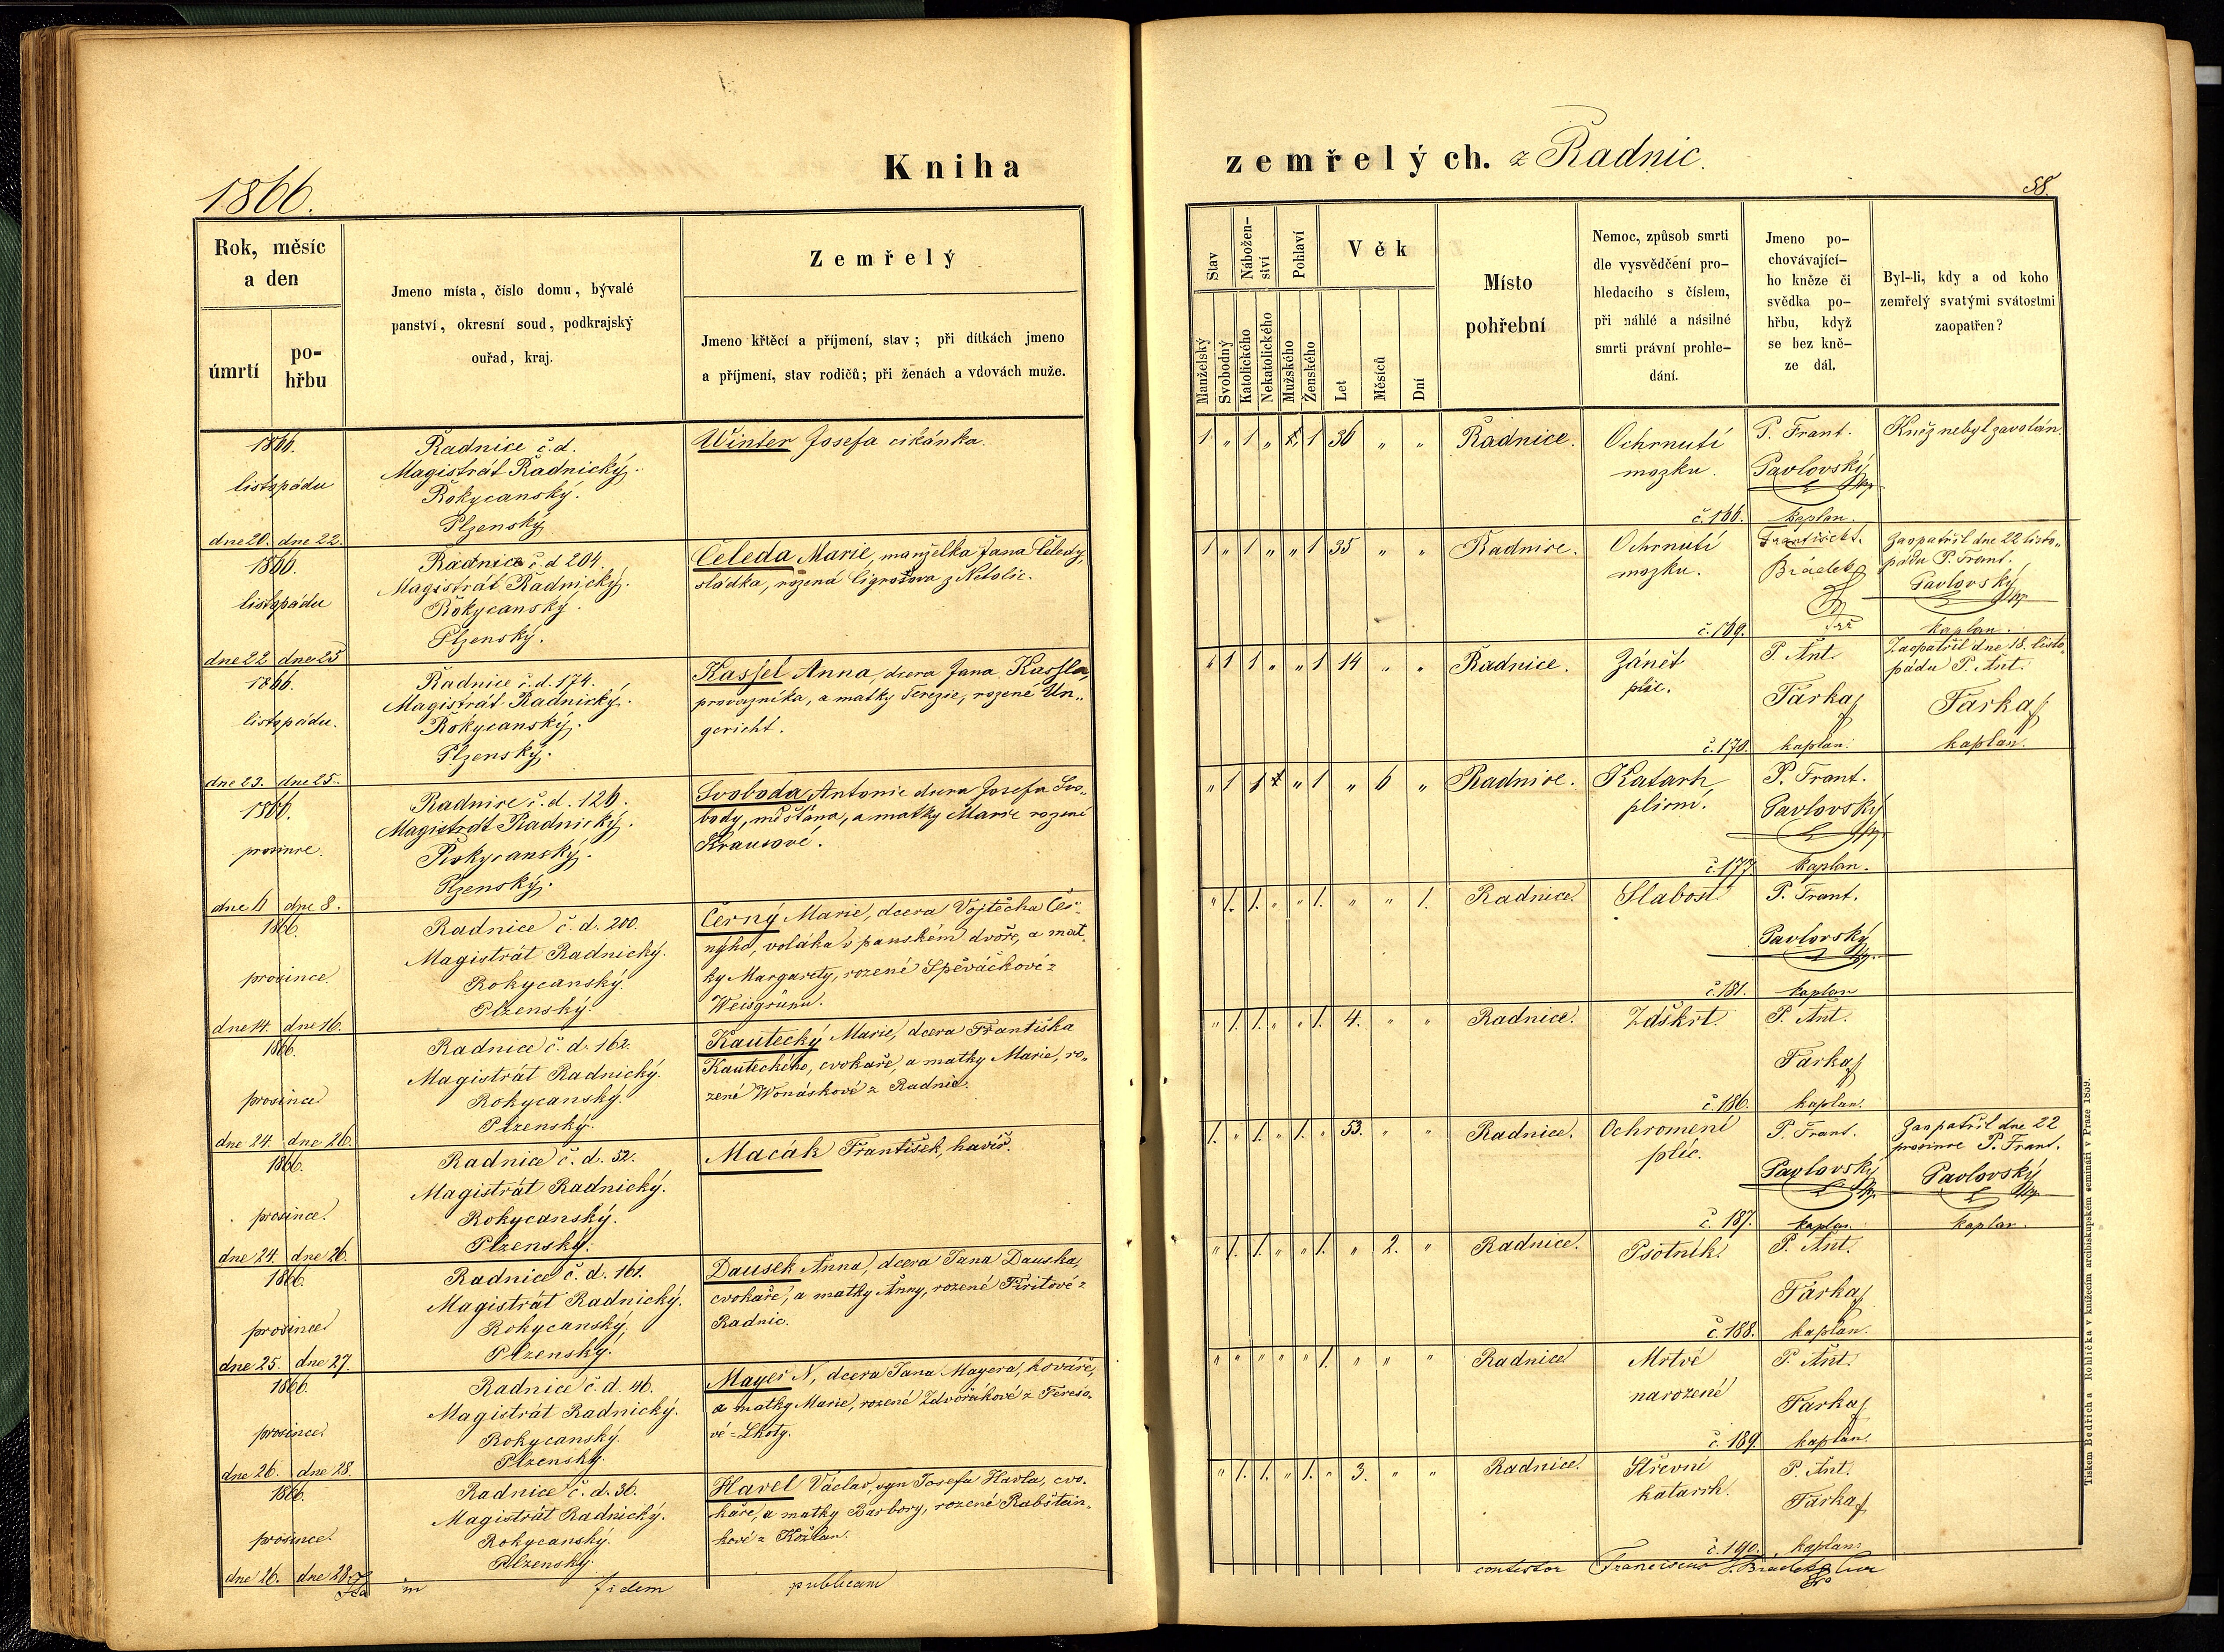 1866.
Kniha
Rok, měsíc
a den
úmrtí
po-
hřbu
Jmeno místa, číslo domu, bývalé
panství, okresní soud, podkrajský
ouřad, kraj.
Zemřelý
Jmeno křtěcí a příjmení, stav; při dítkách jmeno
a příjmení, stav rodičů; při ženách a vdovách muže.
1866.
listopádu
dne 20. dne 22.
Radnice č. d.
Magistrát Radnický.
Rokycanský.
Plzenský
Winter Josefa cikánka.
1866.
listopádu
dne 22 dne 25
Radnice č. d 204.
Magistrát Radnický.
Rokycanský.
Plzenský.
Čeleda Marie, manželka Jana Čeledy,
sládka, rozená Cigrošova z Netolic.
1866.
listopádu.
dne 23. dne 25.
Radnice č. d. 174.
Magistrát Radnický.
Rokycanský.
Plzenský.
Kassel Anna, dcera Jana Kassla,
provazníka, a matky Terezie, rozené Un-
gericht.
1866.
prosince.
dne 6 dne 8.
Radnice č. d. 126.
Magistrát Radnický.
Rokycanský.
Plzenský.
Svoboda Antonie dcera Josefa Svo-
body, měštana, a matky Marie rozené
Krausové.
1866.
prosince
dne 14. dne 16.
Radnice č. d. 200.
Magistrát Radnický.
Rokycanský.
Plzenský.
Černý Marie, dcera Vojtěcha Čer-
nýho, voláka v panském dvoře, a mat-
ky Margarety, rozené Spěváčkové z
Weisgrünu.
1866.
prosince
dne 24. dne 26.
Radnice č. d. 162.
Magistrát Radnický.
Rokycanský.
Plzenský.
Kautecký Marie, dcera Františka
Kauteckého, cvokaře, a matky Marie, ro-
zené Wonáskové z Radnic.
1866.
prosince.
dne 24. dne 26.
Radnice č. d. 52.
Magistrát Radnický.
Rokycanský.
Plzenský.
Macák František, havíř.
1866.
prosince
dne 25. dne 27.
Radnice č. d. 161.
Magistrát Radnický.
Rokycanský.
Plzenský.
Dausek Anna, dcera Jana Dauska,
cvokaře, a matky Anny, rozené Tiritové z
Radnic.
1866.
prosince.
dne 26. dne 28.
Radnice č. d. 46.
Magistrát Radnický.
Rokycanský.
Plzenský.
Mayer N, dcera Jana Mayera, kováře,
a matky Marie, rozené Zdvořákové z Tereso-
vé-Lhoty.
1866.
prosince.
dne 26. dne 28.
Radnice č. d. 36.
Magistrát Radnický.
Rokycanský.
Plzenský.
Havel Václav, syn Josefa Havla, cvo-
kaře, a matky Barbory, rozené Rabštein-
kové z Kožlan.
in fidem publicam
zemřelých. z Radnic.
58.
Stav
Nábožen-
ství
Pohlaví
Věk
Manželský
Svobodný
Katolického
Nekatolického
Mužského
Ženského
Let
Měsíců
Dní
Místo
pohřební
Nemoc, způsob smrti
dle vysvědčení pro-
hledacího s číslem,
při náhlé a násilné
smrti právní prohle-
dání.
Jmeno po-
chovávající-
ho kněze či
svědka po-
hřbu, když
se bez kně-
ze dál.
Byl-li, kdy a od koho
zemřelý svatými svátostmi
zaopatřen?
1 „ 1 „ 1 36 „ „ Radnice. Ochrnutí
mozku.
č. 166.
P. Frant.
Pavlovský
kaplan.
Kněz nebyl zavolán.
1 „ 1 „ „ 1 35 „ „ Radnice. Ochrnutí
mozku.
č. 169.
František
Brádek
Zaopatřil dne 22 listo-
pádu P. Frant.
Pavlovský
kaplan.
1 1 „ „ 1 14 „ „ Radnice. Zánět
plic.
č. 170.
P. Ant.
Farka
kaplan.
Zaopatřil dne 18. listo-
pádu P. Ant.
Farka
kaplan.
„ 1 1 „ 1 „ 6 „ Radnice. Katarh
plicní.
č. 177.
P. Frant.
Pavlovský
kaplan.
„ 1. 1. „ „ 1. „ „ 1. Radnice. Slabost.
č. 181.
P. Frant.
Pavlovský
kaplan
„ 1. 1. „ „ 1. 4. „ „ Radnice. Zdškrt.
č. 186.
P. Ant.
Farka
kaplan.
1. „ 1. „ 1. „ 53. „ „ Radnice. Ochromení
plic.
č. 187.
P. Frant.
Pavlovský
kaplan.
Zaopatřil dne 22
prosince P. Frant.
Pavlovský
kaplan.
„ 1. 1. „ „ 1. „ 2. „ Radnice. Psotník.
č. 188.
P. Ant.
Farka
kaplan.
„ „ „ „ „ 1. „ „ „ Radnice Mrtvě
narozené
č. 189.
P. Ant.
Farka
kaplan.
„ 1. 1. „ 1. „ 3. „ „ Radnice. Střevní
katarrh.
č. 190.
P. Ant.
Farka
kaplan.
contestor Franciscus
Tiskem Bedřicha Rohlíčka v knížecím arcibiskupském semináři v Praze 1859.